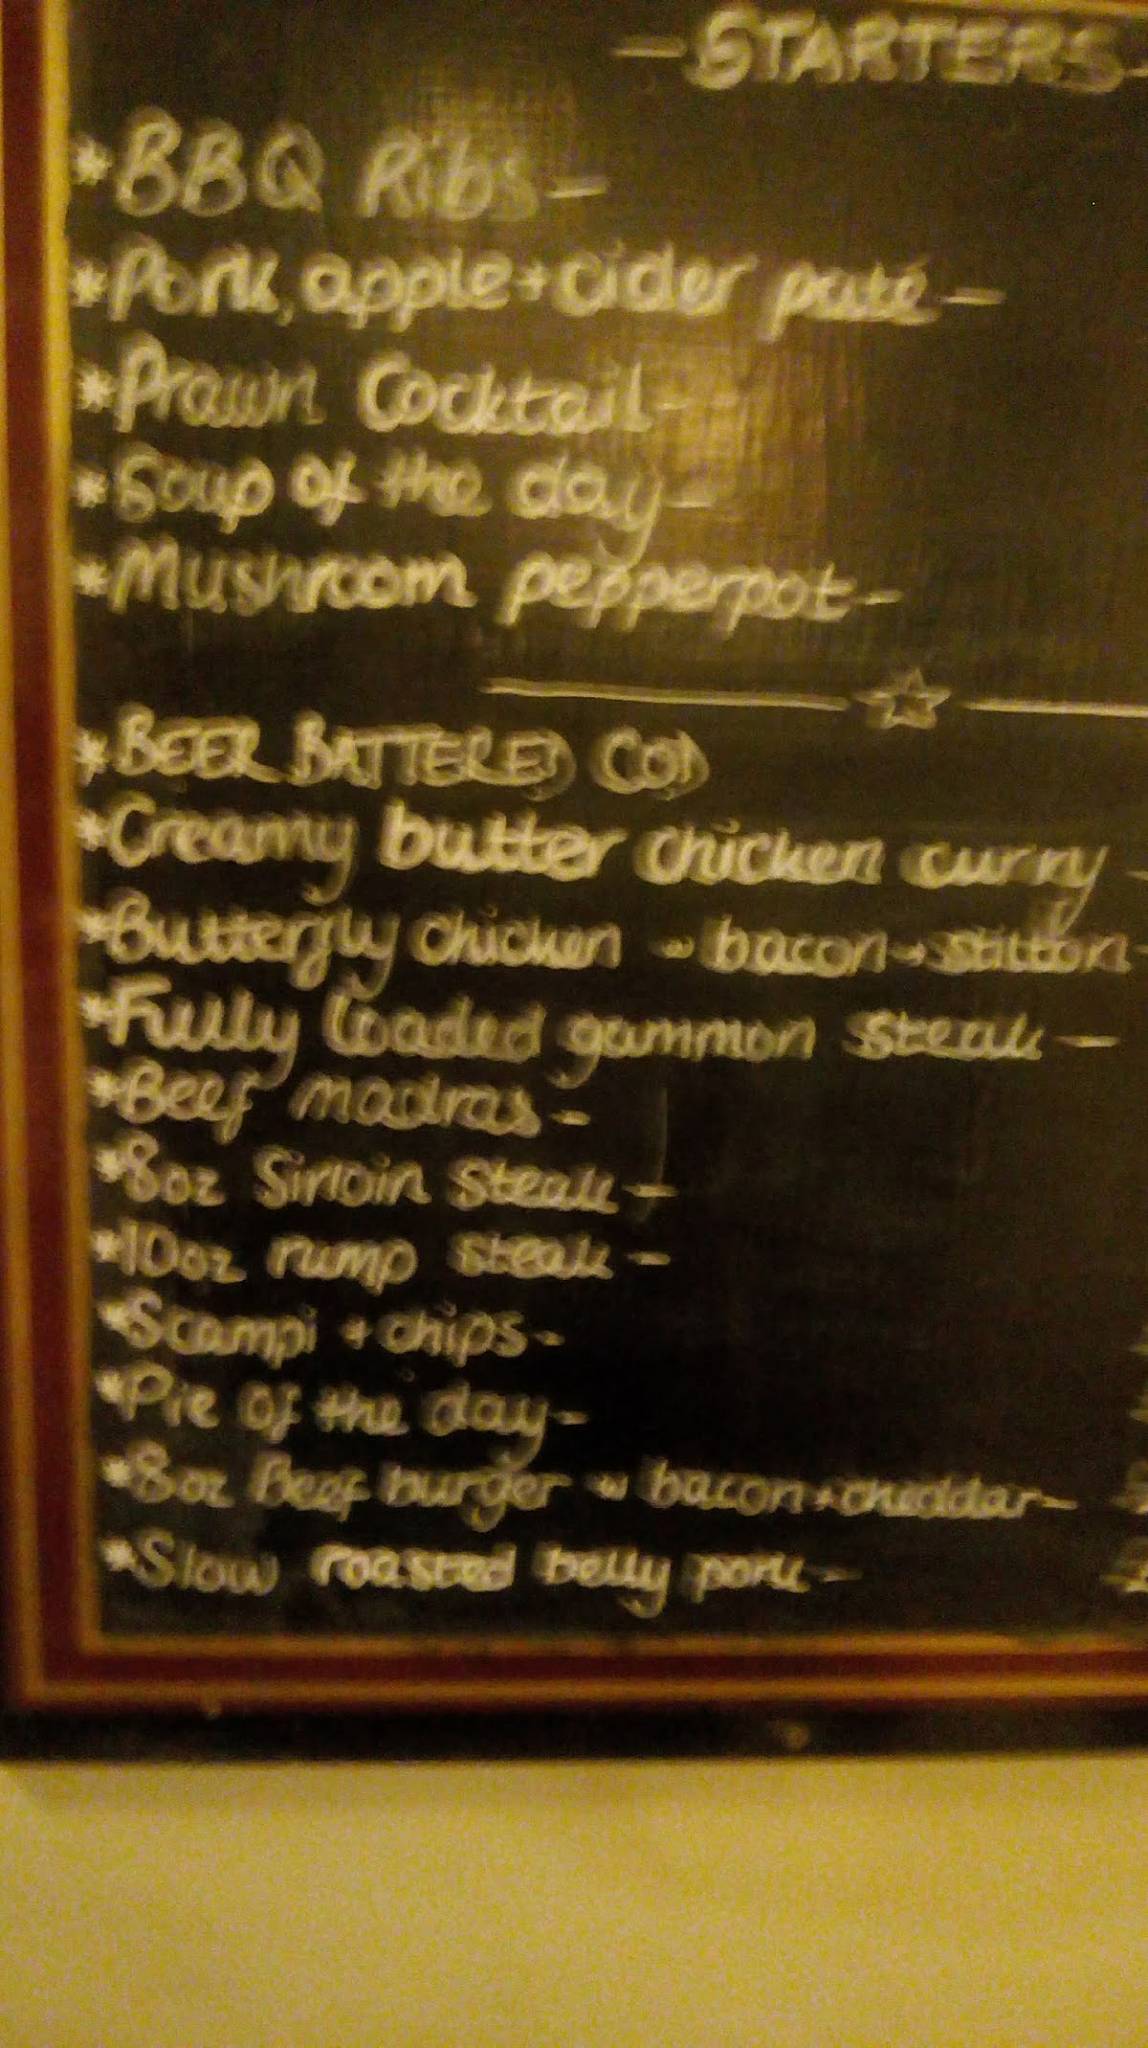 -STARTERS-
*BBQ Ribs-
*Pork, apple+cider paté-
*Prawn Cocktail-
*Soup of the day-
*Mushroom pepperpot-
*BEER BATTERED COD
*Creamy butter chicken curry-
*Butterfly chicken w bacon+stilton
*Fully loaded gammon steak-
*Beef madras-
*8oz Sirloin steak-
*10oz rump steak-
*Scampi + chips-
*Pie of the day-
*8oz Beef burger w bacon+cheddar-
*Slow roasted belly pork-